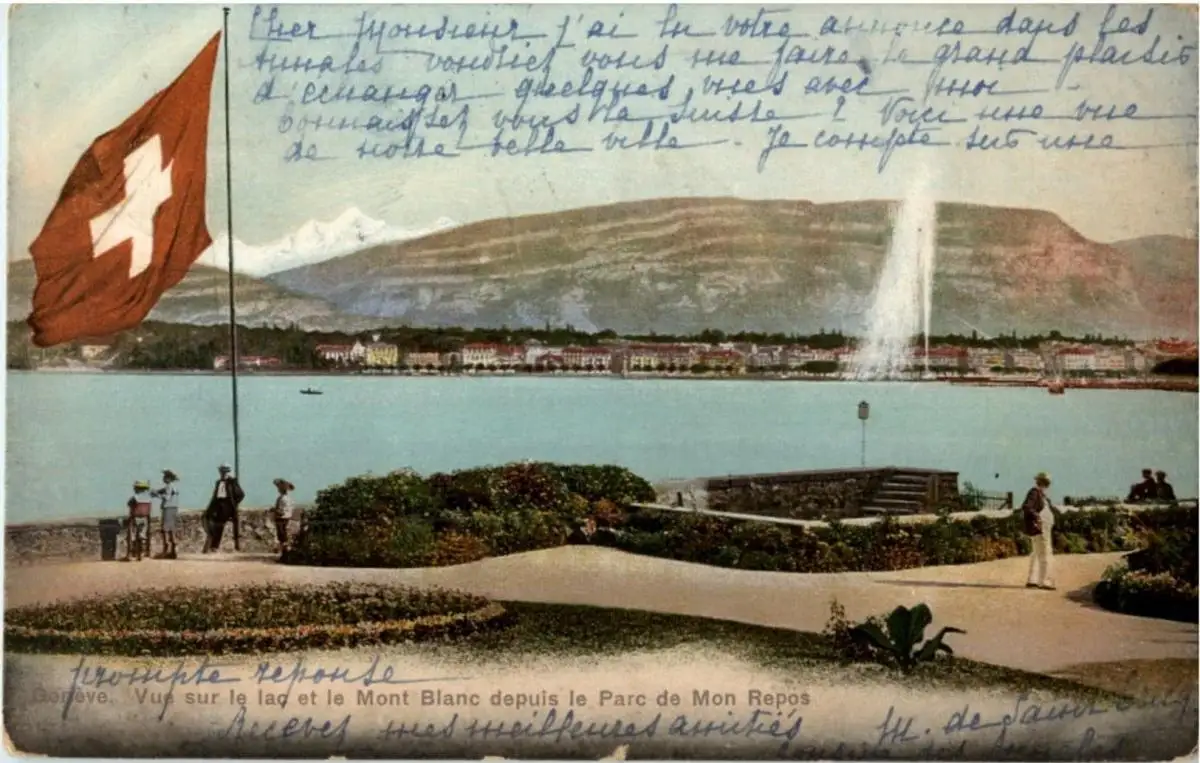 Cher Monsieur j'ai lu votre annonce dans les
Annales voudriez vous me faire le grand plaisir
d'échanger quelques vues avec moi
Connaissez vous la Suisse ? Voici une vue
de notre belle ville. Je compte sur une
prompte réponse
Genève. Vue sur le lac et le Mont Blanc depuis le Parc de Mon Repos
Recevez mes meilleures amitiés
M. de Saint
des Annales